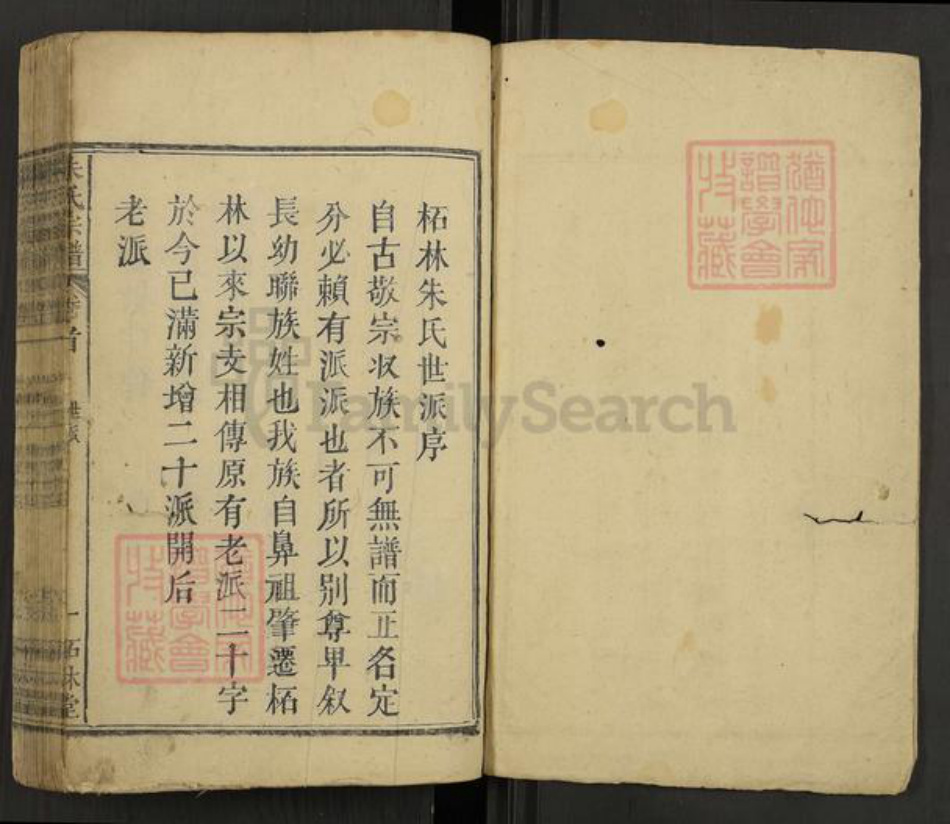 柘林朱氏世派序
自古敬宗收族不可無譜而正名定
分必賴有派派也者所以别尊卑叙
長幼聯族姓也我族自鼻祖肇遷柘
林以來宗支相傳原有老派二十字
於今已滿新增二十派開后
老派
朱氏宗譜
卷首
世派
一
柘林堂
FamilySearch
譜學會
收藏
譜學會
收藏